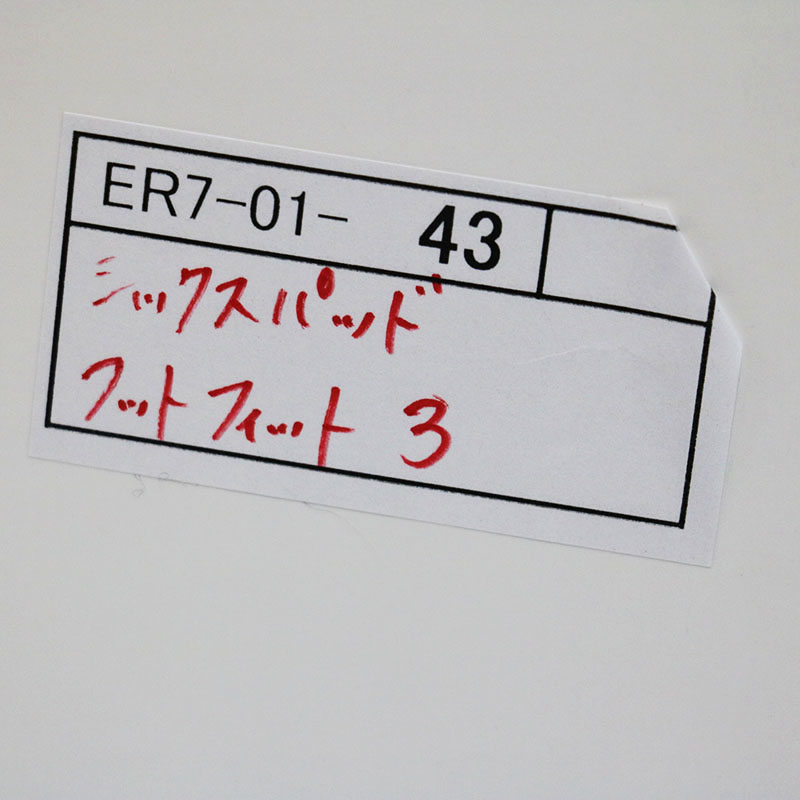 ER7-01- 43
シックスパッド
フットフィット 3